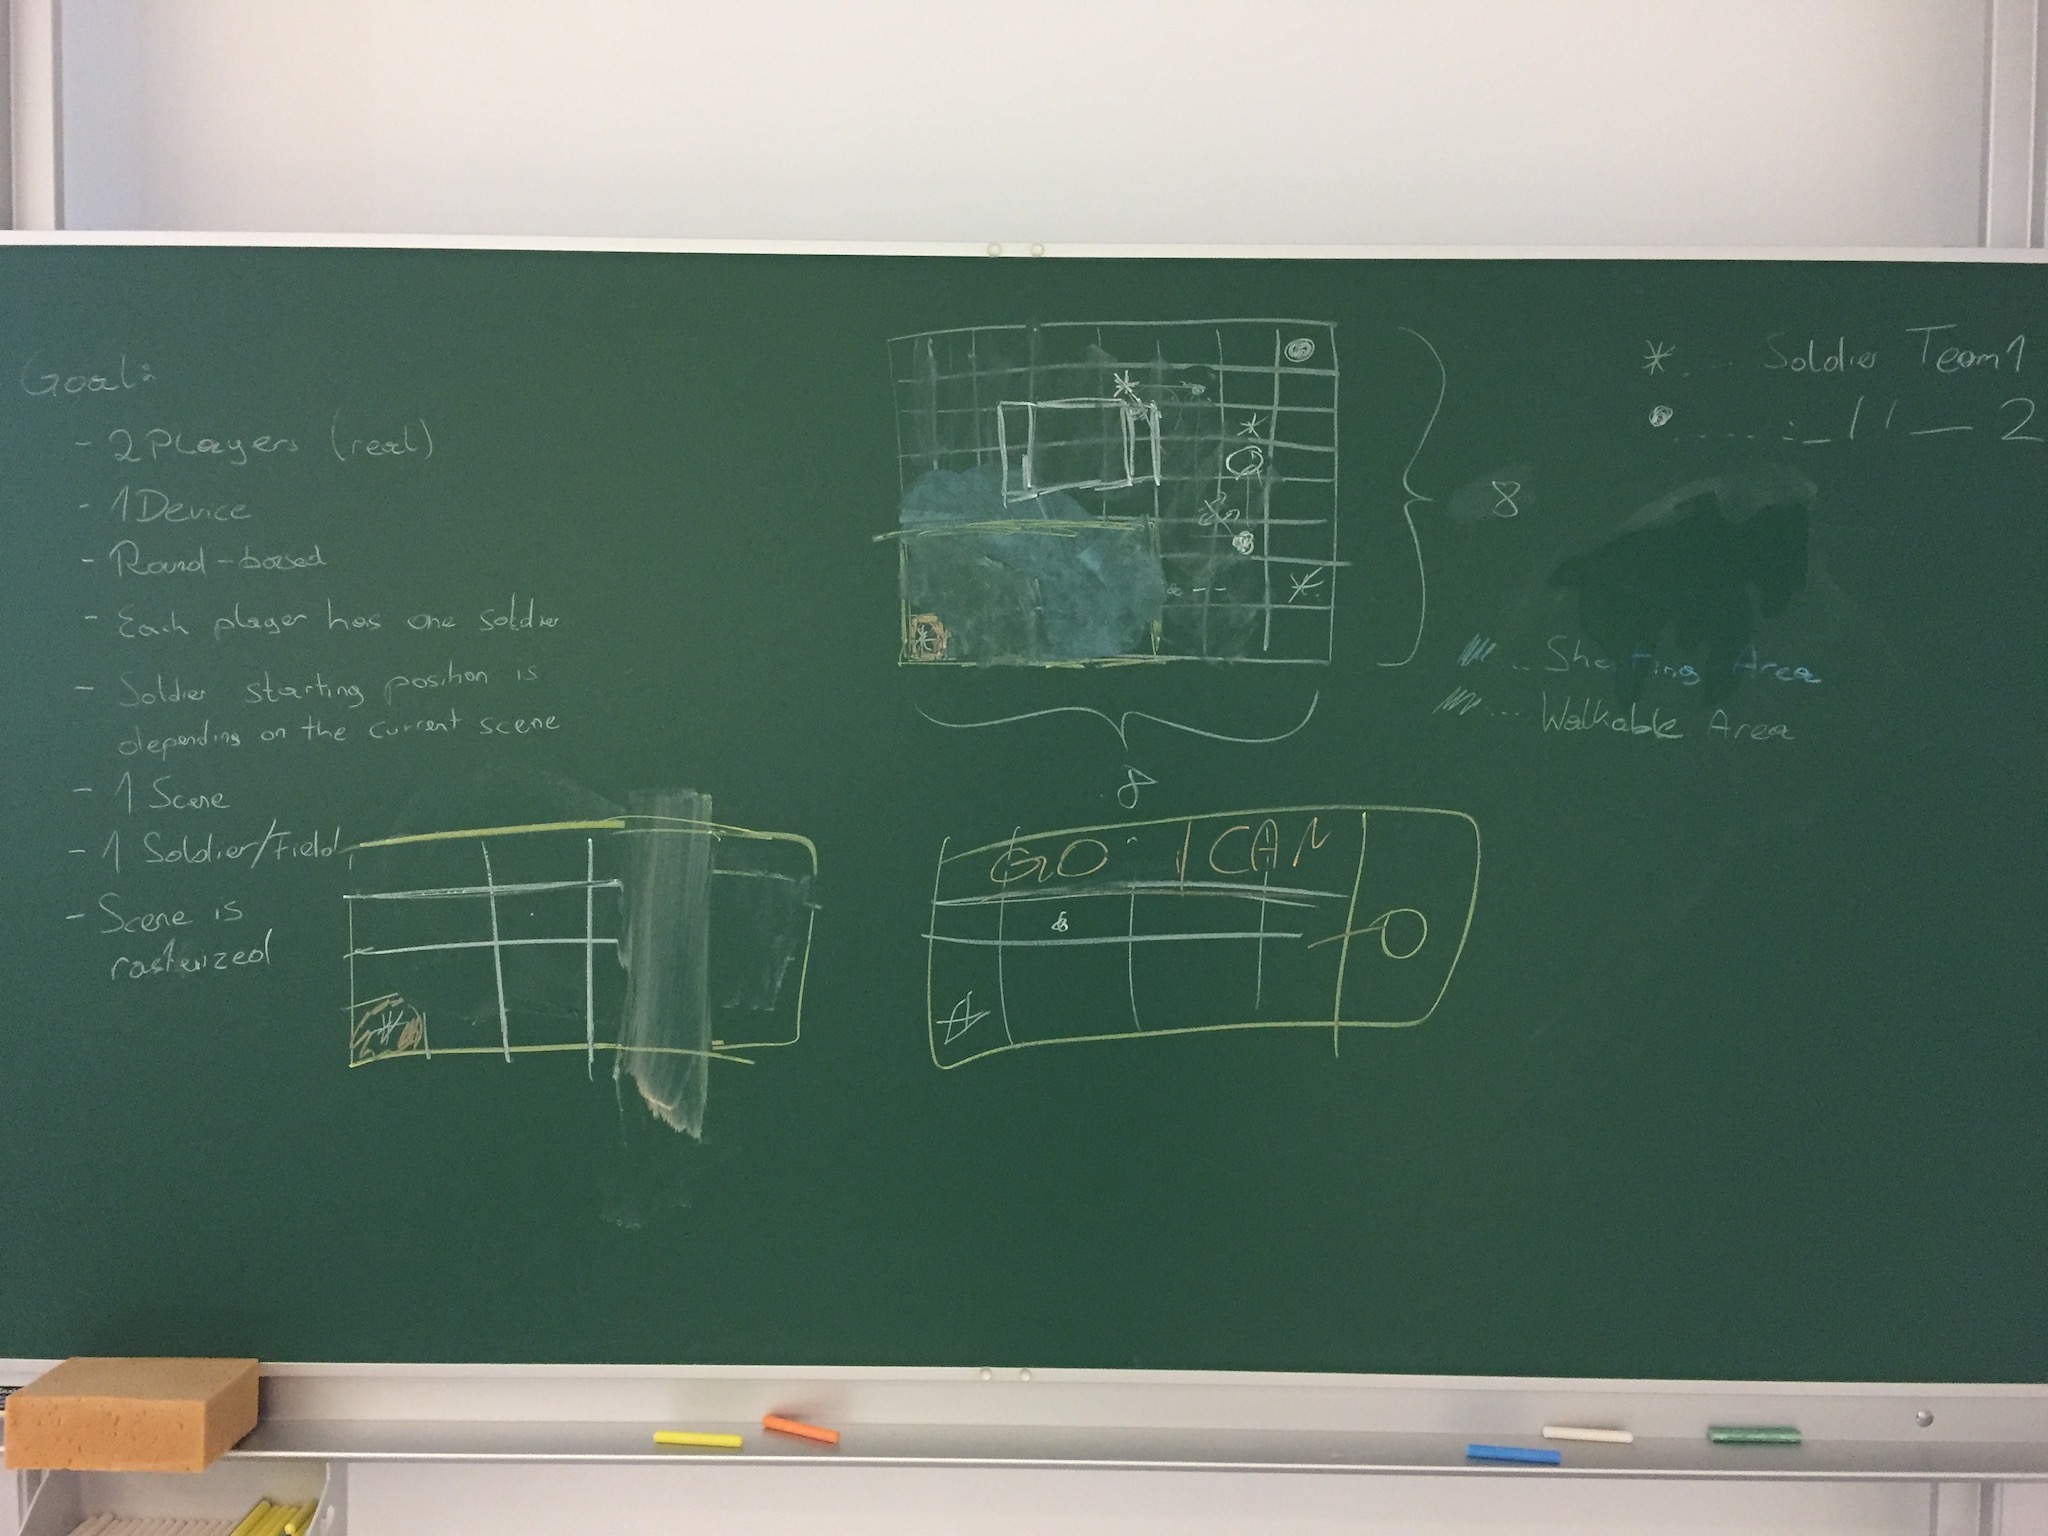 Goal:
- 2 Players (real)
- 1 Device
- Round-based
- Each player has one soldier
- Soldier starting position is
depending on the current scene
- 1 Scene
- 1 Soldier/Field
- Scene is
rasterized
8
8
* .... Soldier Team 1
....... _ // _ 2
... Shooting Area
... Walkable Area
GO